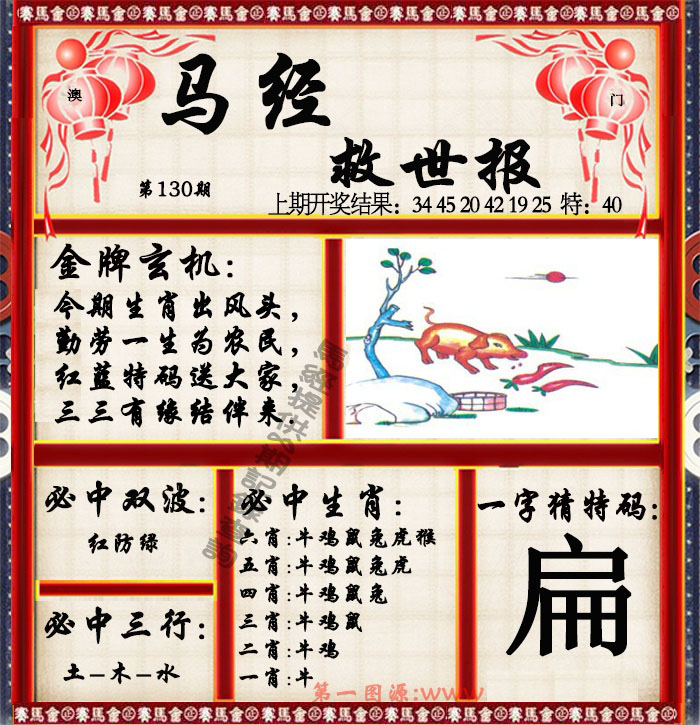 賽馬會㊣賽馬會㊣賽馬會㊣賽馬會㊣賽馬會㊣賽馬會㊣賽馬會㊣賽馬會
澳
门
马经
救世报
第130期
上期开奖结果：34 45 20 42 19 25 特：40
金牌玄机:
今期生肖出风头，
勤劳一生为农民，
红蓝特码送大家，
三三有缘结伴来.
必中双波:
红防绿
必中三行:
土-木-水
必中生肖:
六肖:牛鸡鼠兔虎猴
五肖:牛鸡鼠兔虎
四肖:牛鸡鼠兔
三肖:牛鸡鼠
二肖:牛鸡
一肖:牛
一字猜特码:
扁
第一图源:www